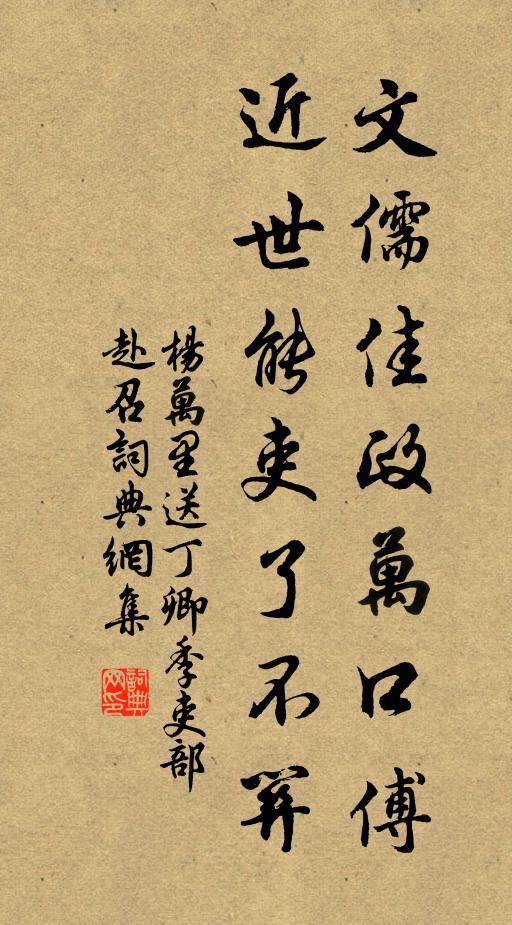 文儒佳政萬口傳
近世能吏了不關
楊萬里送丁卿季吏部
赴召詞典網集
詞典
网印